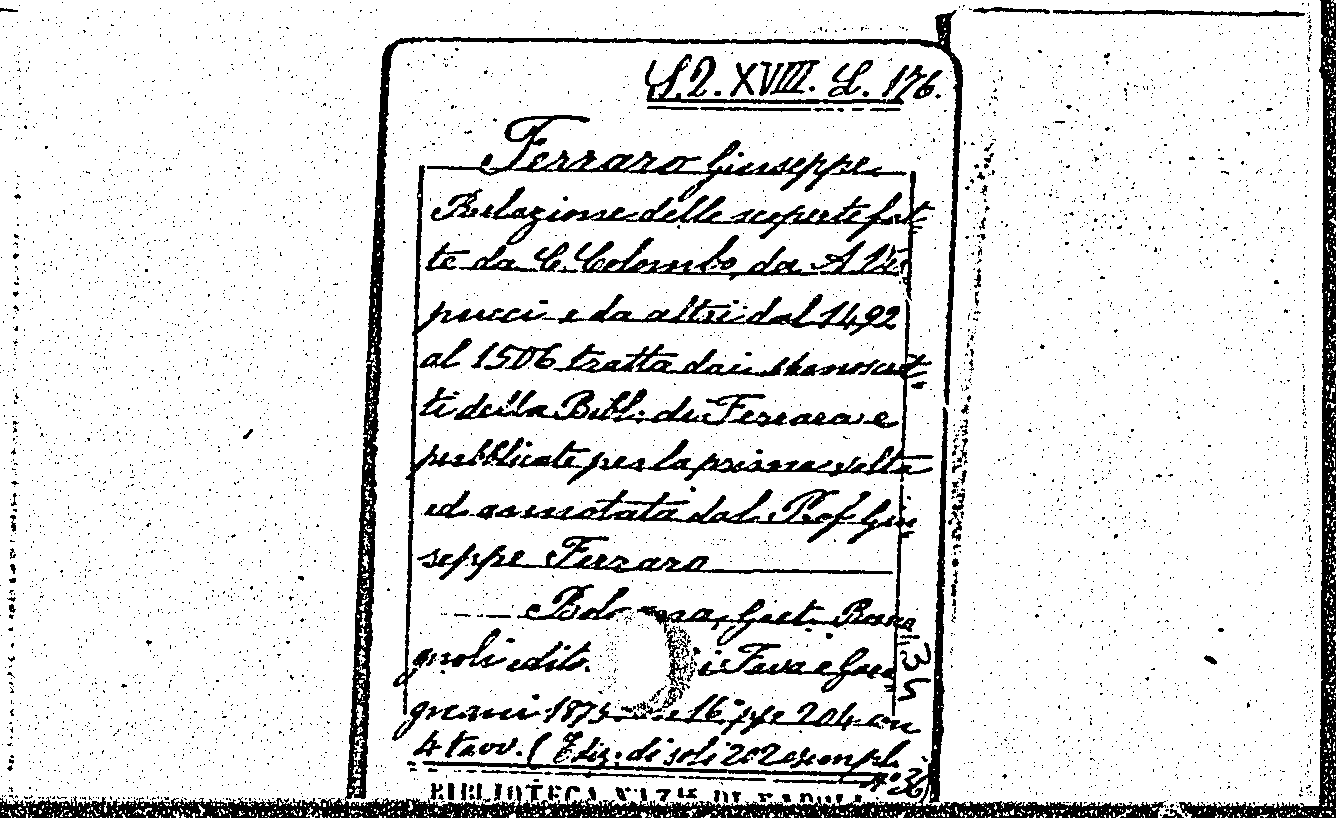 S.Q. XVIII. L. 176.
Ferraro Giuseppe
Relazione delle scoperte fat-
te da C. Colombo, da A Ves
pucci e da altri dal 1492
al 1506 tratta dai manoscrit-
ti della Bibl. di Ferrara e
pubblicate per la prima volta
ed annotata dal Prof Giu
seppe Ferraro
Bologna, Gaet. Roma
gnoli edit. i Fava e Gara
gnani 1875 16° pp 204 con
4 tavv. (Ediz. di soli 202 esempl.
n° 36)
134
BIBLIOTECA NAZ.le DI NAPOLI